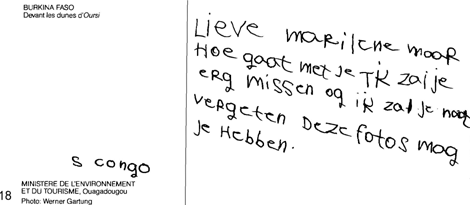 BURKINA FASO
Devant les dunes d'Oursi
Lieve marilene moor
Hoe gaat met je Ik zal je
erg missen og ik zal je nooy
vergeten Deze fotos mog
je Hebben.
s congo
MINISTERE DE L'ENVIRONNEMENT
ET DU TOURISME, Ouagadougou
18 Photo: Werner Gartung